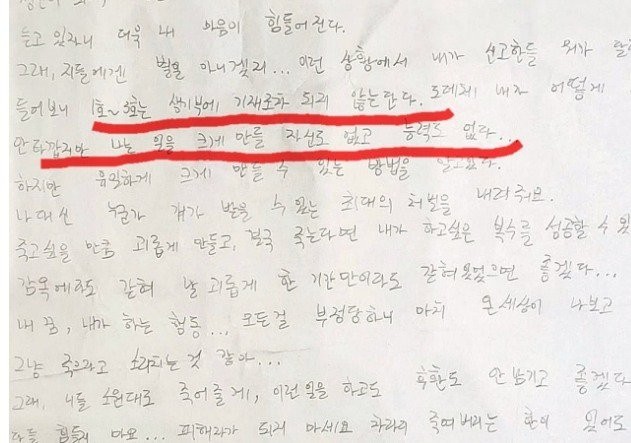 듣고 있자니 더욱 내 마음이 힘들어진다.
그래, 지들에겐 별일 아니겠지... 이런 상황에서 내가 신고한들 뭐가 달
들어보니 1호~3호는 생기부에 기재조차 되지 않는단다. 도데체 내가 어떻게
안타깝지만 나는 일을 크게 만들 자신도 없고 능력도 없다...
하지만 유일하게 크게 만들 수 있는 방법을 알고있다.
나 대신 누군가 걔가 받을 수 있는 최대의 처벌을 내려줘브.
죽고싶을 만큼 괴롭게 만들고, 결국 죽는다면 내가 하고싶은 복수를 성공할 수 있
감옥에라도 갇혀 날 괴롭게 한 기간만이라도 갇혀있었으면 좋겠다...
내 꿈, 내가 하는 행동... 모든걸 부정당하니 마치 온세상이 나보고
그냥 죽으라고 소리치는 것 같아...
그래, 니들 소원대로 죽어줄게, 이런일을 하고도 후환도 안 남기고 좋겠다
다들 힘들지 마요... 피해자가 되지 마세요 차라리 죽여버리는 한이 있어도